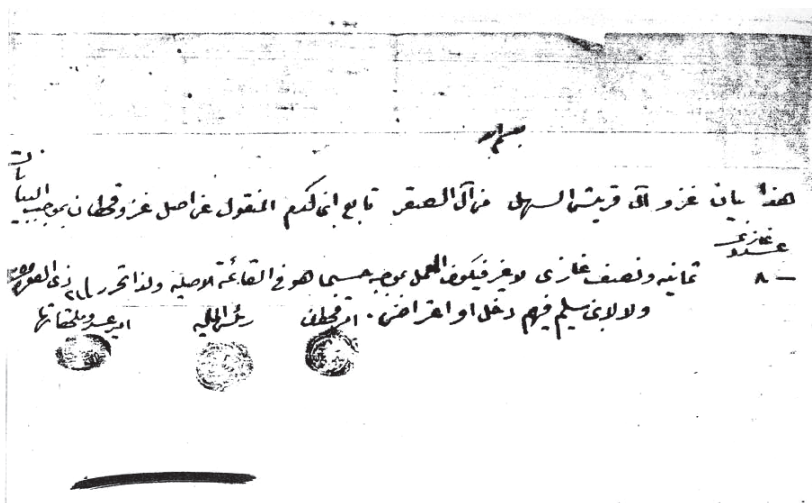 بسم الله
هذا بيان غزو آل قريش السهل من آل الصقر تابع ابن كدم المنقول عن اصل غزو قحطان بموجب البيانات
غازي
عدد
٨ ثمانية ونصف غازي لا غير فيكون العمل بموجبه حسبما هو في القائمة الاصليه ولذا تحرر ٢١ ذي القعده
ولا لابن سليم فيهم دخل او اعتراض.
امير قحطان رئيس الماليه امير عسير وملحقاتها